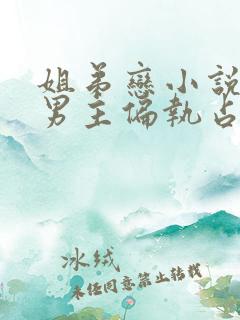 姐弟戀小說
男主偏執占
冰绒
未经同意禁止转载